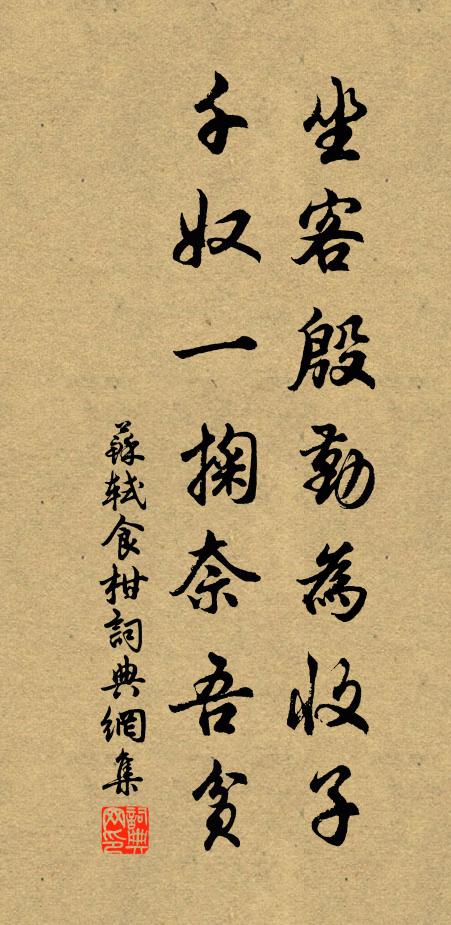 坐客殷勤為收子
千奴一掬奈吾貧
蘇軾食柑詞典網集
詞典網印